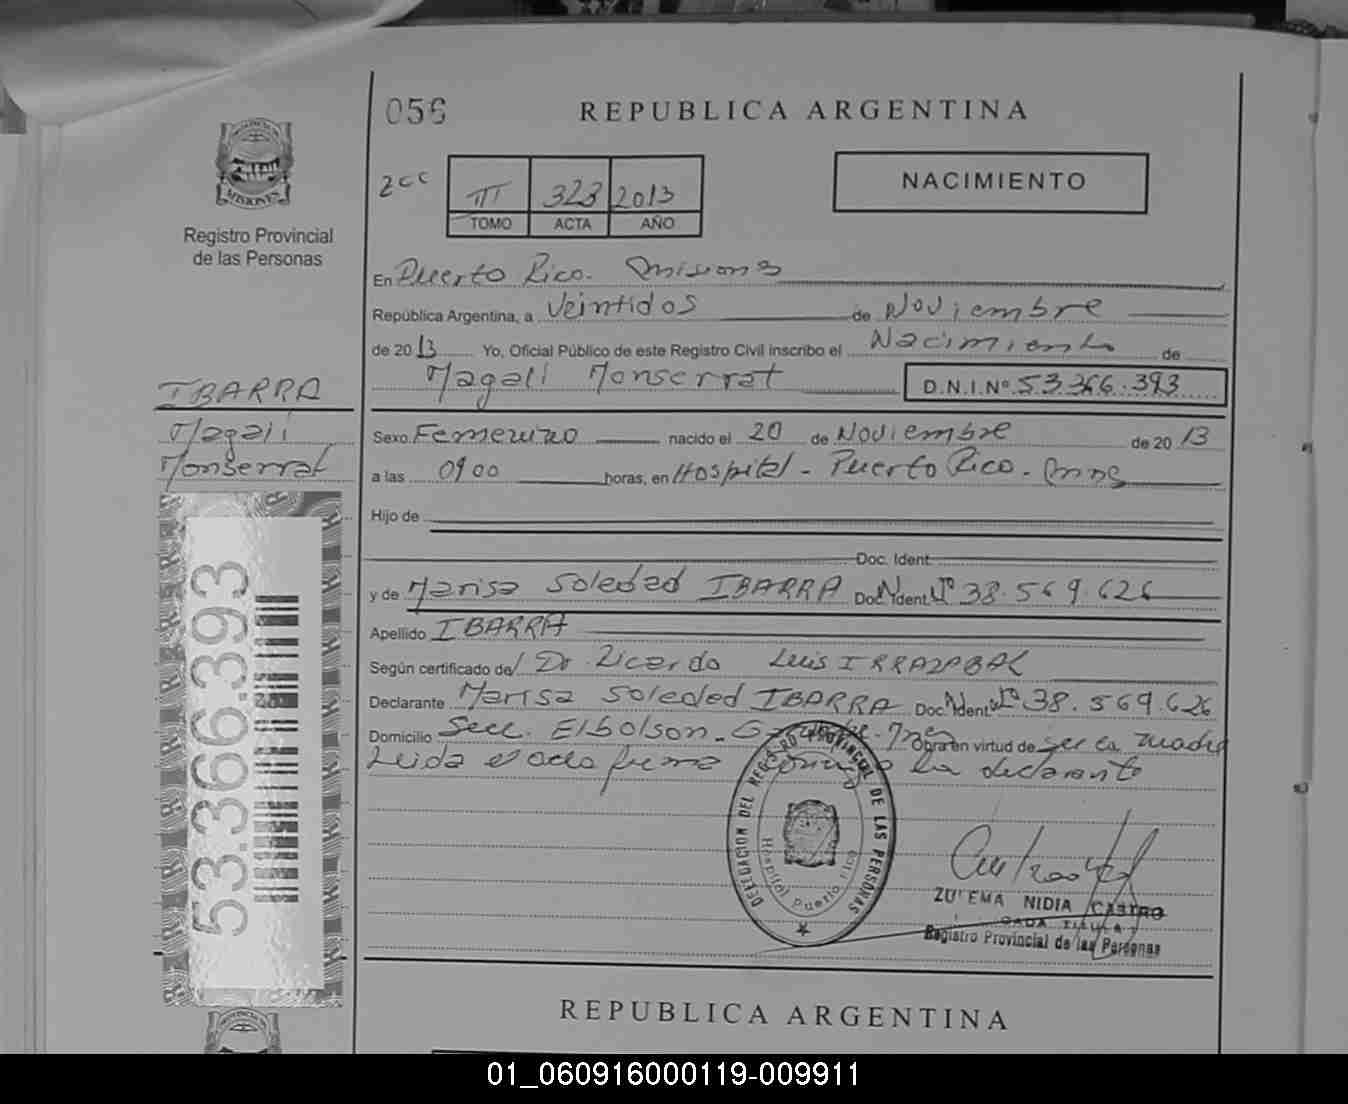 056
REPUBLICA ARGENTINA
2cc
III 323 2013
TOMO ACTA AÑO
NACIMIENTO
MISIONES
Registro Provincial
de las Personas
En Puerto Rico. Misiones
República Argentina, a Veintidos de Noviembre
de 2013 Yo, Oficial Público de este Registro Civil inscribo el Nacimiento de
Magalí Monserrat D.N.I.Nº 53.366.393
IBARRA
Magalí
Monserrat
Sexo Femenino nacido el 20 de Noviembre de 2013
a las 0900 horas, en Hospital - Puerto Rico. Mnes
Hijo de
Doc. Ident.
y de Marisa Soledad IBARRA Doc. Ident. Nº 38.569.626
Apellido IBARRA
Según certificado del Dr. Ricardo Luis IRRAZABAL
Declarante Marisa Soledad IBARRA Doc. Ident. Nº 38.569.626
Domicilio Secc. El bolson - Mnes Obra en virtud de ser la madre
Leida el acta firma la declarante
53.366.393
DELEGACION DEL REGISTRO PROVINCIAL DE LAS PERSONAS
Hospital Puerto Rico
ZULEMA NIDIA CASTRO
Registro Provincial de las Personas
REPUBLICA ARGENTINA
01_060916000119-009911